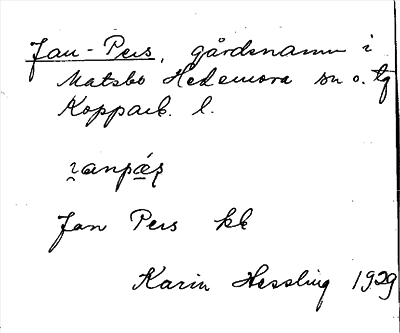 Jan-Pers, gårdsnamn i
Matsbo Hedemora sn o. tg
Kopparb. l.
ɿanpǽʂ
Jan Pers kk
Karin Hessling 1929